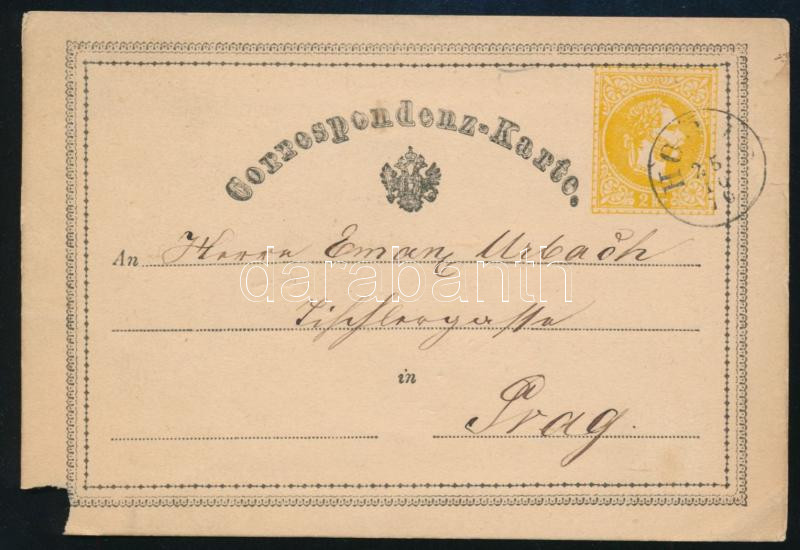 Correspondenz-Karte.
2
25
An Herrn Eman Urbach
darabanth
Tischlergasse
in
Prag.